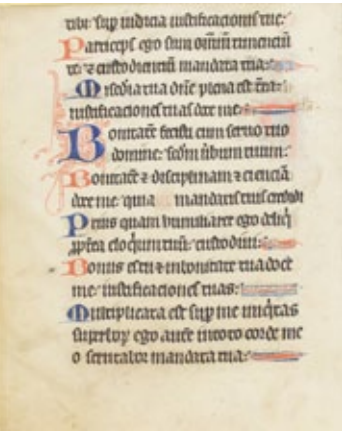 tibi: sup iudicia iustificacionis tue.
Particeps ego sum omiū timenciū
te: ⁊ custodienciū mandata tua.
Misc̄dia tua dn̄e plena est t̄ra:
iustificaciones tuas doce me.
Bonitatē fecisti cum seruo tuo
domine: sc̄dm ūbum tuum.
Bonitatē ⁊ disciplinam ⁊ scienciā
doce me: quia mandatis tuis credidi
Prius quam humiliarer ego deliq̄
ꝓpt̄ea eloq̄um tuū custodiui.
Bonus es tu: ⁊ in bonitate tua doce
me: iustificaciones tuas.
Multiplicata est sup me iniq̄tas
superbor̄ ego autē in toto corde me
o scrutabor mandata tua.